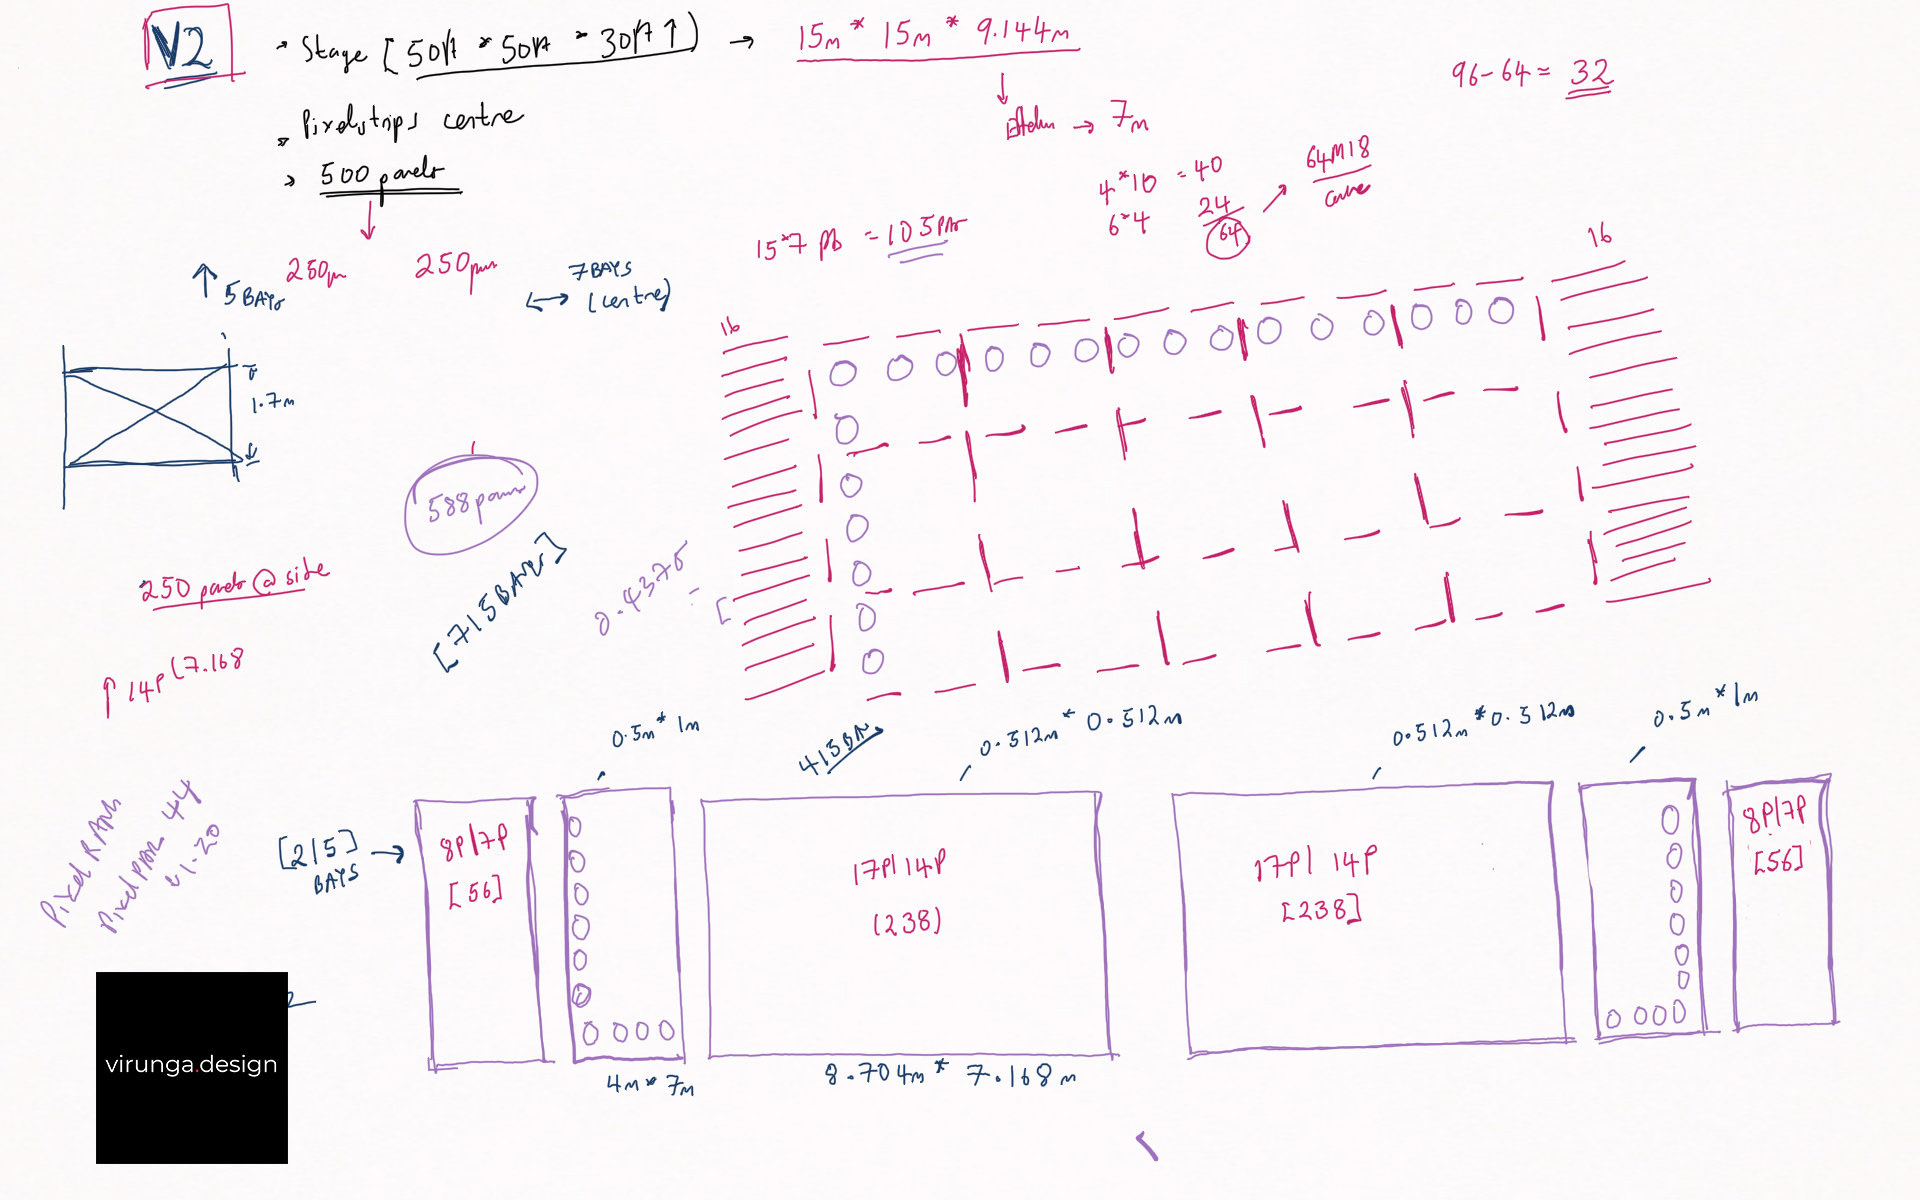 V2
→ Stage [50ft * 50ft * 30ft ↑) → 15m * 15m * 9.144m
96-64 = 32
Pixelstrips centre
→ 7m
→ 500 panels
4*10 = 40
6*4 24
64
64M18
centre
15*7 = 105PAR
16
↑ 5 BAYS
250
250
7 BAYS
(centre)
16
1.7m
588
[7|5 BAYS]
0.4375
250 panels @ side
↑ 14P (7.168
0.5m * 1m
4|5 BAY
0.512m * 0.512m
0.512m * 0.512m
0.5m * 1m
Pixel PAR 44
1.20
[2|5]
BAYS
8P|7P
[56]
17P|14P
(238)
17P|14P
[238]
8P|7P
[56]
4m * 7m
8.704m * 7.168m
virunga.design